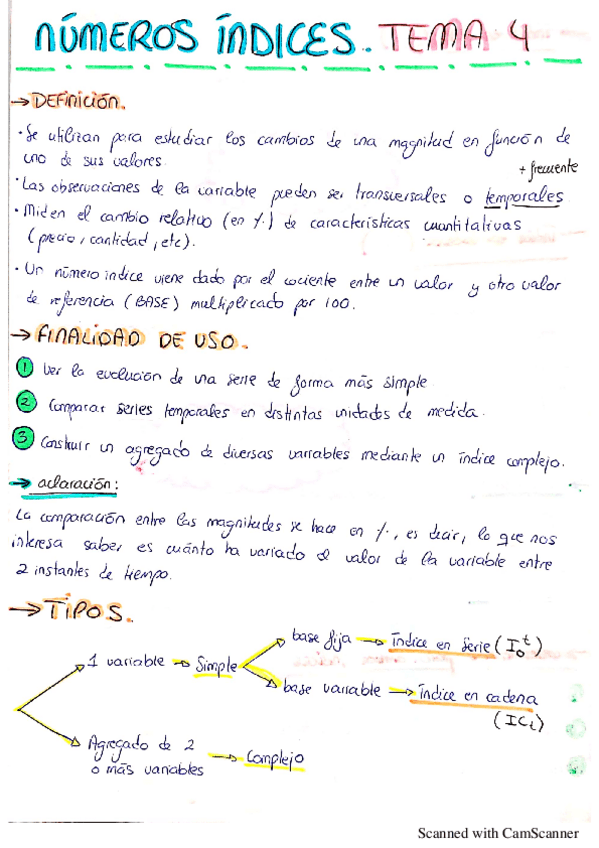 NÚMEROS ÍNDICES. TEMA 4
→ DEFINICIÓN.
· Se utilizan para estudiar los cambios de una magnitud en función de
uno de sus valores.
+ frecuente
· Las observaciones de la variable pueden ser transversales o temporales
· Miden el cambio relativo (en %) de características cuantitativas
(precio, cantidad, etc).
· Un número índice viene dado por el cociente entre un valor y otro valor
de referencia (BASE) multiplicado por 100.
→ FINALIDAD DE USO.
1 Ver la evolución de una serie de forma más simple
2 Comparar series temporales en distintas unidades de medida.
3 Construir un agregado de diversas variables mediante un índice complejo.
→ aclaración:
La comparación entre las magnitudes se hace en %, es decir, lo que nos
interesa saber es cuánto ha variado el valor de la variable entre
2 instantes de tiempo.
→ TIPOS.
base fija → índice en serie (I₀ᵗ)
1 variable → Simple
base variable → índice en cadena
(ICi)
Agregado de 2
o más variables → Complejo
Scanned with CamScanner